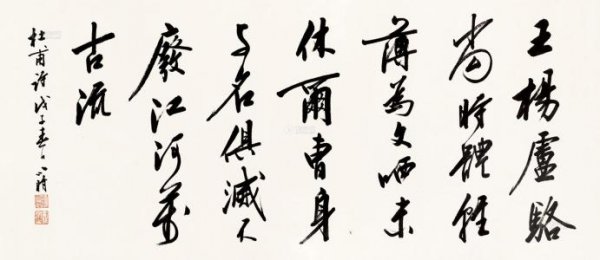 王楊盧駱
當時體輕
薄為文哂未
休爾曹身
与名俱滅不
廢江河萬
古流
杜甫詩戊子春